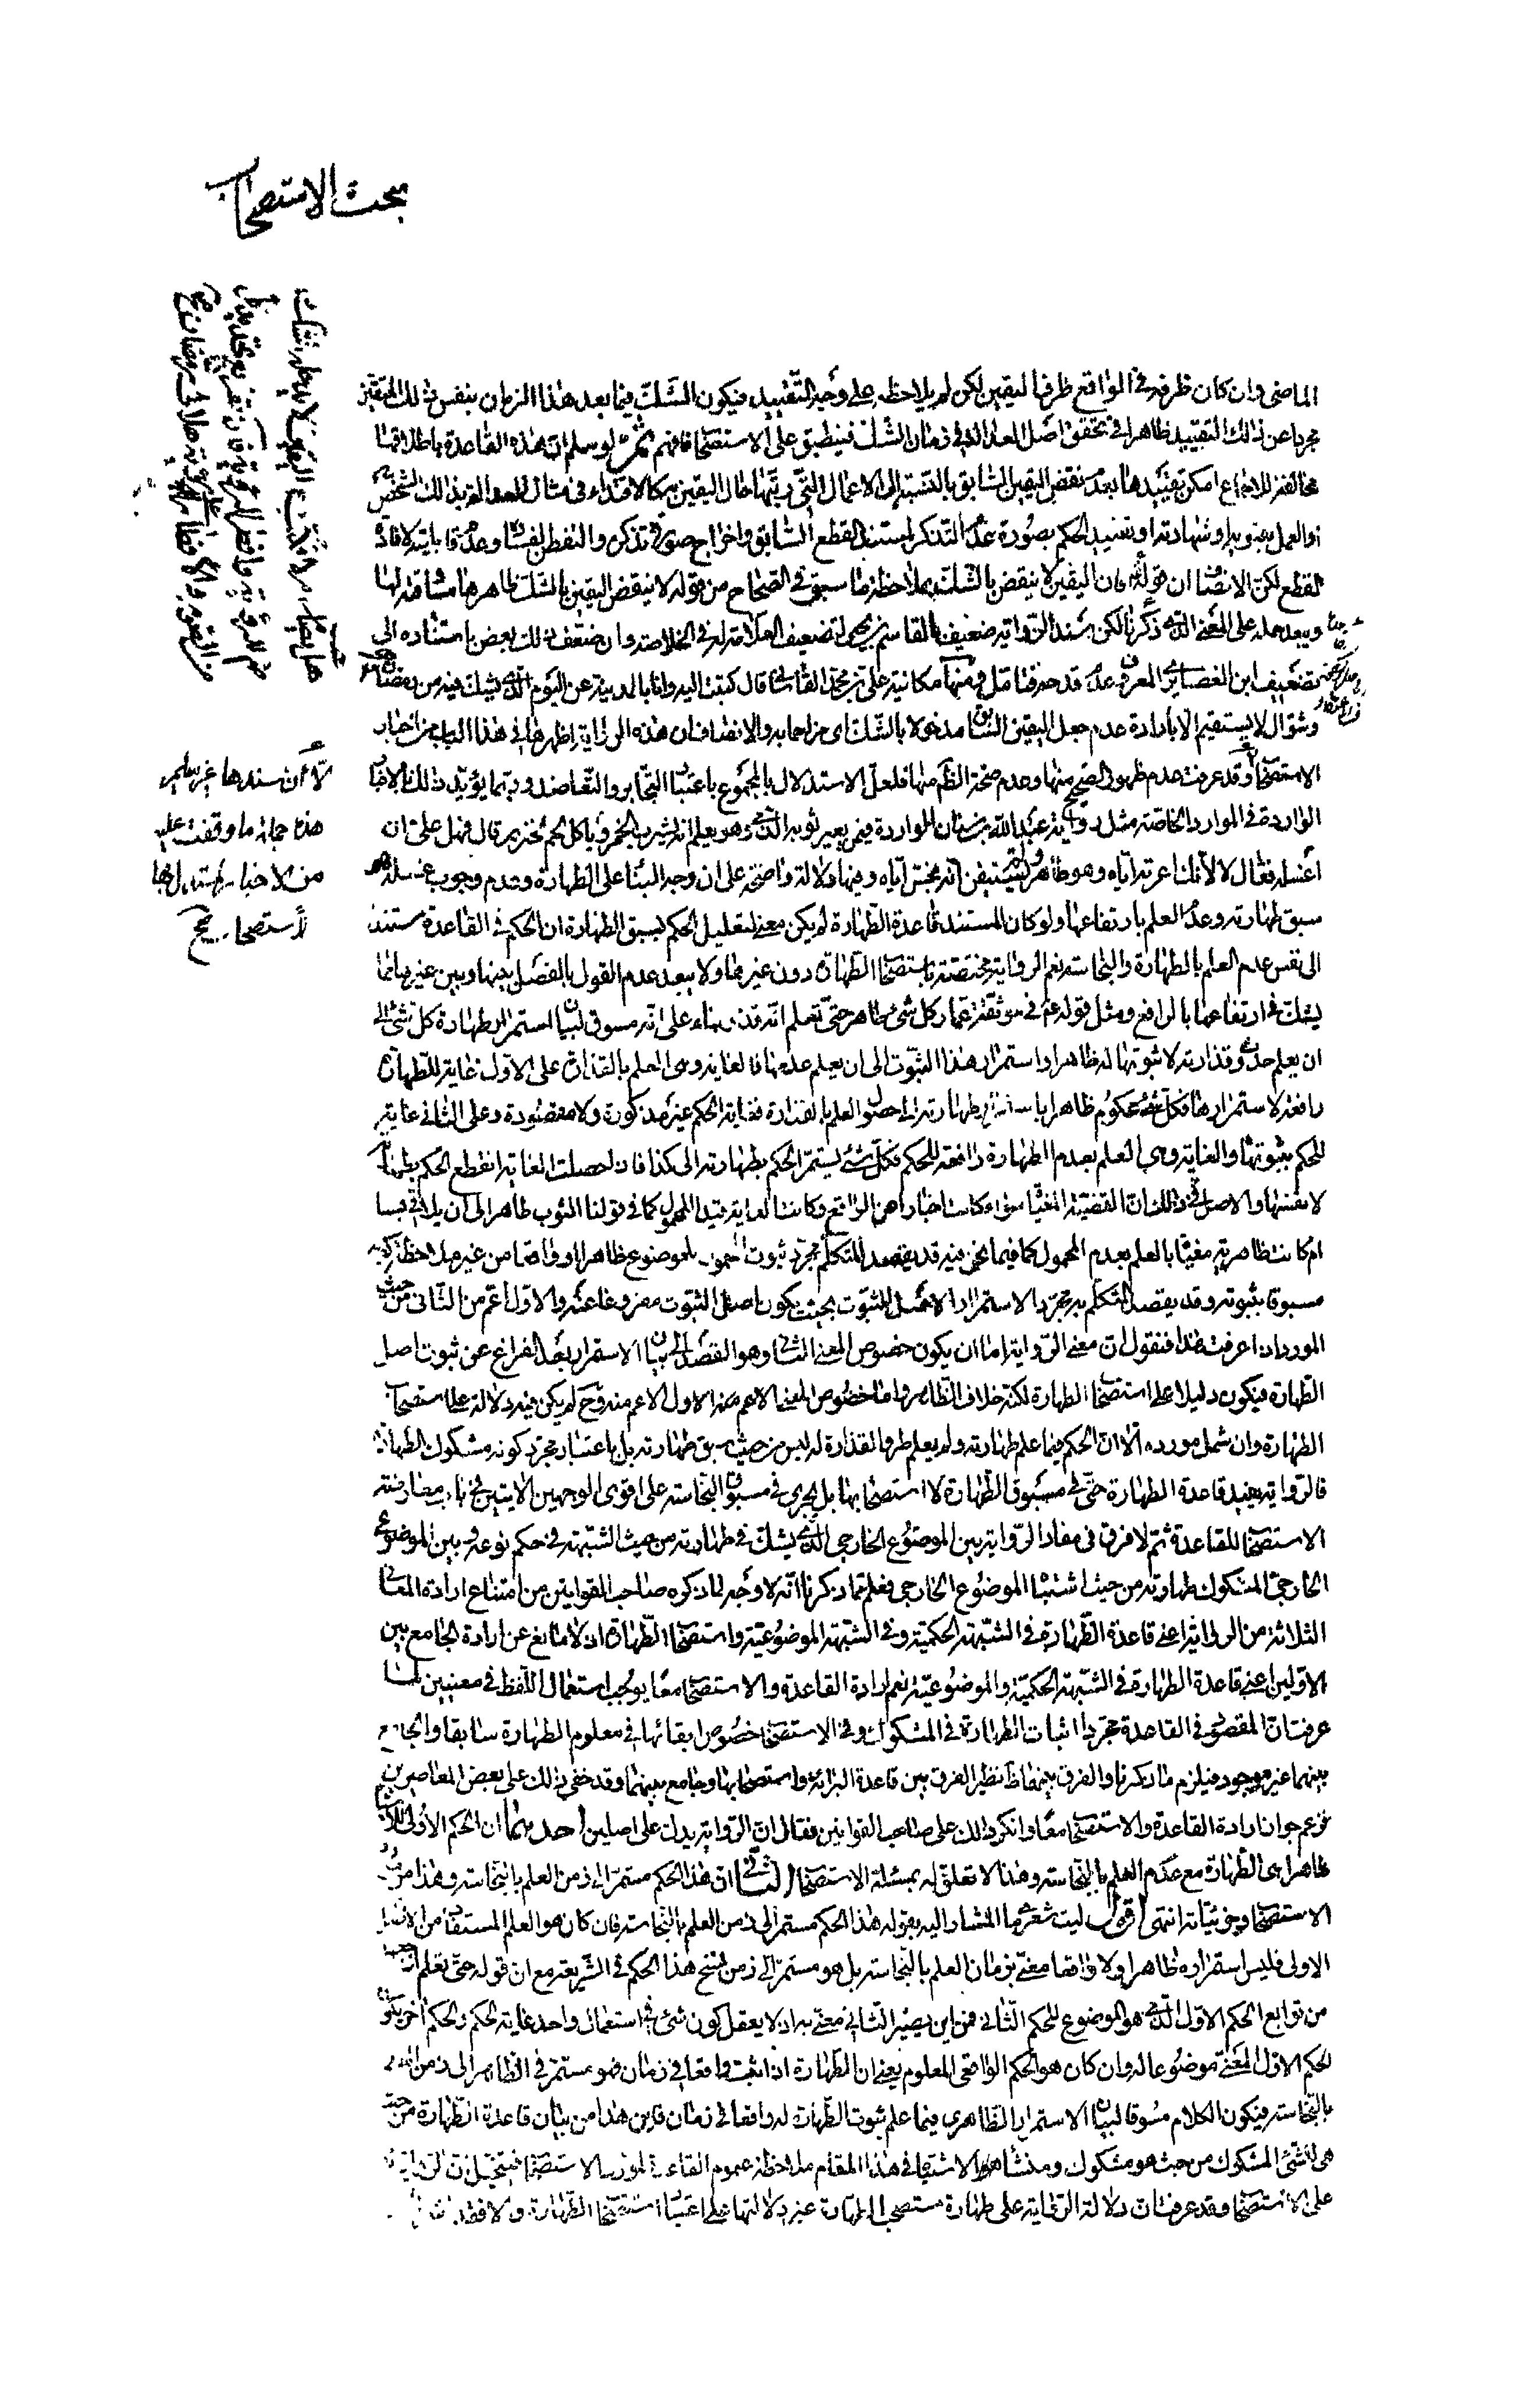 مبحث الاستصحاب
الماضى وان كان ظرفه فى الواقع ظرف اليقين لكن لم يلاحظه على وجه التقييد فيكون الشك فيما بعد هذا الزمان بنفس ذلك المتيقن
مجردا عن ذلك التقييد ظاهرا فى تحقق اصل العدالة فى زمان الشك فينطبق على الاستصحاب فافهم ثم لو سلم ان هذه القاعدة باطلاقها
مخالفة للاجماع امكن تقييدها بعدم نقض اليقين السابق بالنسبة الى الاعمال التى رتبها حال اليقين به كالاقتداء فى مثال العدالة بذلك الشخص
او العمل بفتويه او شهادته او تقييد الحكم بصورة عدم التذكر لمستند القطع السابق واخراج صورة تذكره والتفطن لفساده وعدم قابليته لافادة
القطع لكن الانصاف ان قوله فان اليقين لا ينقض بالشك بملاحظة ما سبق فى الصحاح من قوله لا ينقض اليقين بالشك ظاهرها مساوقته لها
ويبعد حمله على المعنى الذى ذكرنا لكن سند الرواية ضعيف بالقاسم بن يحيى لتضعيف العلامة له فى الخلاصة وان ضعف ذلك بعض باستناده الى
تضعيف ابن الغضائرى المعروف عدم قدحه فتامل ومنها مكاتبة على بن محمد القاسانى قال كتبت اليه وانا بالمدينة عن اليوم الذى يشك فيه من رمضان
هل يصام ام لا فكتب اليقين لا يدخله الشك
صم للرؤية وافطر للرؤية فان تفريع تحديد كل
من الصوم والافطار برؤية هلالى رمضان
وشوال لا يستقيم الا بارادة عدم جعل اليقين السابق مدخولا بالشك اى مزاحما به والانصاف ان هذه الرواية اظهر ما فى هذا الباب من اخبار
الاستصحاب
الا ان سندها غير سليم
هذه جملة ما وقفت عليه
من الاخبار المستدل بها
للاستصحاب
وقد عرفت عدم ظهور الصحيح منها وعدم صحة الظاهر منها فلعل الاستدلال بالمجموع باعتبار التجابر والتعاضد وربما يؤيد ذلك بالاخبار
الواردة فى الموارد الخاصة مثل رواية عبد الله بن سنان الواردة فيمن يعير ثوبه الذمى وهو يعلم انه يشرب الخمر وياكل لحم الخنزير قال فهل على ان
اغسله فقال لا لانك اعرته اياه وهو طاهر ولم تستيقن انه نجسه اياه وفيها دلالة واضحة على ان وجه البناء على الطهارة وعدم وجوب غسله هو
سبق طهارته وعدم العلم بارتفاعها ولو كان المستند قاعدة الطهارة لم يكن معنى لتعليل الحكم بسبق الطهارة اذ الحكم فى القاعدة مستند
الى نفس عدم العلم بالطهارة والنجاسة نعم الرواية مختصة باستصحاب الطهارة دون غيرها ولا يبعد عدم القول بالفصل بينها وبين غيرها مما
يشك فى ارتفاعها بالرافع ومثل قوله ع فى موثقة عمار كل شىء طاهر حتى تعلم انه قذر بناء على انه مسوق لبيان استمرار طهارة كل شىء الى
ان يعلم حدوث قذارته لا ثبوتها له ظاهرا واستمرار هذا الثبوت الى ان يعلم عدمها فالغاية وهى العلم بالقذارة على الاول غاية للطهارة
رافعة لاستمرارها فكل شىء محكوم ظاهرا باستمرار طهارته الى حصول العلم بالقذارة فغاية الحكم غير مذكورة ولا مقصودة وعلى الثانى غاية
للحكم بثبوتها والغاية وهى العلم بعدم الطهارة رافعة للحكم فكل شىء يستمر الحكم بطهارته الى كذا فاذا حصلت الغاية انقطع الحكم بطهارته
لا نفسها والاصل فى ذلك ان القضية المغياة سواء كانت اخبارا عن الواقع وكانت الغاية قيدا للمحمول كما فى قولنا الثوب طاهر الى ان يلاقى نجسا
ام كانت ظاهرية مغياة بالعلم بعدم المحمول كما فيما نحن فيه قد يقصد المتكلم مجرد ثبوت المحمول للموضوع ظاهرا او واقعا من غير ملاحظة كونه
مسبوقا بثبوته وقد يقصد المتكلم به مجرد الاستمرار لا اصل الثبوت بحيث يكون اصل الثبوت مفروغا عنه والاول اعم من الثانى من حيث
المورد اذا عرفت هذا فنقول ان معنى الرواية اما ان يكون خصوص المعنى الثانى وهو القصد الى بيان الاستمرار بعد الفراغ عن ثبوت اصل
الطهارة فيكون دليلا على استصحاب الطهارة لكنه خلاف الظاهر واما خصوص المعنى الاول الاعم منه وح لم يكن فيه دلالة على استصحاب
الطهارة وان شمل مورده الا ان الحكم فيما علم طهارته ولم يعلم طرو القذارة له ليس من حيث سبق طهارته بل باعتبار مجرد كونه مشكوك الطهارة
فالرواية يفيد قاعدة الطهارة حتى فى مسبوق الطهارة لا استصحابها بل يجرى فى مسبوق النجاسة على اقوى الوجهين الاتيين فى باب معارضة
الاستصحاب للقاعدة ثم لا فرق فى مفاد الرواية بين الموضوع الخارجى الذى يشك فى طهارته من حيث الشبهة فى حكم نوعه وبين الموضوع
الخارجى المشكوك طهارته من حيث اشتباه الموضوع الخارجى فعلم مما ذكرنا انه لا وجه لما ذكره صاحب القوانين من امتناع ارادة المعانى
الثلاثة من الرواية اعنى قاعدة الطهارة فى الشبهة الحكمية وفى الشبهة الموضوعية واستصحاب الطهارة اذ لا مانع عن ارادة الجامع بين
الاولين اعنى قاعدة الطهارة فى الشبهة الحكمية والموضوعية نعم ارادة القاعدة والاستصحاب معا يوجب استعمال اللفظ فى معنيين لما
عرفت ان المقصود فى القاعدة مجرد اثبات الطهارة فى المشكوك وفى الاستصحاب خصوص ابقائها فى معلوم الطهارة سابقا والجامع
بينهما غير موجود فيلزم ما ذكرنا والفرق بينهما ظاهر نظير الفرق بين قاعدة البرائة واستصحابها ولا جامع بينهما وقد خفى ذلك على بعض المعاصرين
فزعم جواز ارادة القاعدة والاستصحاب معا وانكر ذلك على صاحب القوانين فقال ان الرواية يدل على اصلين احدهما ان الحكم الاولى للاشياء
ظاهرا هى الطهارة مع عدم العلم بالنجاسة وهذا لا تعلق له بمسئلة الاستصحاب الثانى ان هذا الحكم مستمر الى زمن العلم بالنجاسة وهذا من موارد
الاستصحاب وجزئياته انتهى اقول ليت شعرى ما المشار اليه بقوله هذا الحكم مستمر الى زمن العلم بالنجاسة فان كان هو الحكم المستفاد من الاصل
الاولى فليس استمراره ظاهرا ولا واقعا مغيى بزمان العلم بالنجاسة بل هو مستمر الى زمن نسخ هذا الحكم فى الشريعة مع ان قوله حتى تعلم
من توابع الحكم الاول الذى هو الموضوع للحكم الثانى فمن اين يصير الثانى مغيى به اذ لا يعقل كون شىء فى استعمال واحد غاية لحكم ولحكم اخر يكون
الحكم الاول المغيى موضوعا له وان كان هو الحكم الواقعى المعلوم يعنى ان الطهارة اذا ثبت واقعا فى زمان فهو مستمر فى الظاهر الى زمن العلم
بالنجاسة فيكون الكلام مسوقا لبيان الاستمرار الظاهرى فيما علم ثبوت الطهارة له واقعا فى زمان فاين هذا من بيان قاعدة الطهارة من حيث
هى للشىء المشكوك من حيث هو مشكوك ومنشأ الاشتباه فى هذا المقام ملاحظة عموم القاعدة لمورد الاستصحاب فيتخيل ان الرواية
على الاستصحاب وقد عرفت ان دلالة الرواية على طهارة مستصحب الطهارة غير دلالتها على اعتبار استصحاب الطهارة والا فقد